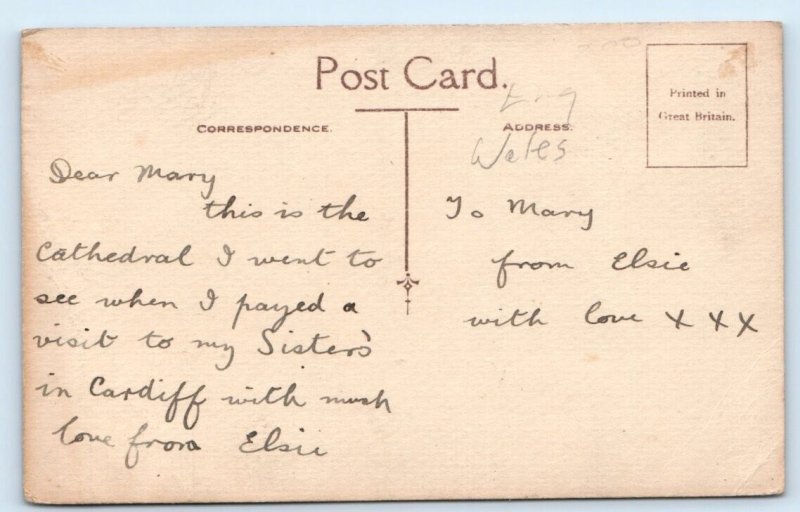 Post Card.
CORRESPONDENCE.
ADDRESS.
Printed in
Great Britain.
Eng
Wales
Dear Mary
this is the
Cathedral I went to
see when I payed a
visit to my Sister's
in Cardiff with much
love from Elsie
To Mary
from Elsie
with love x x x